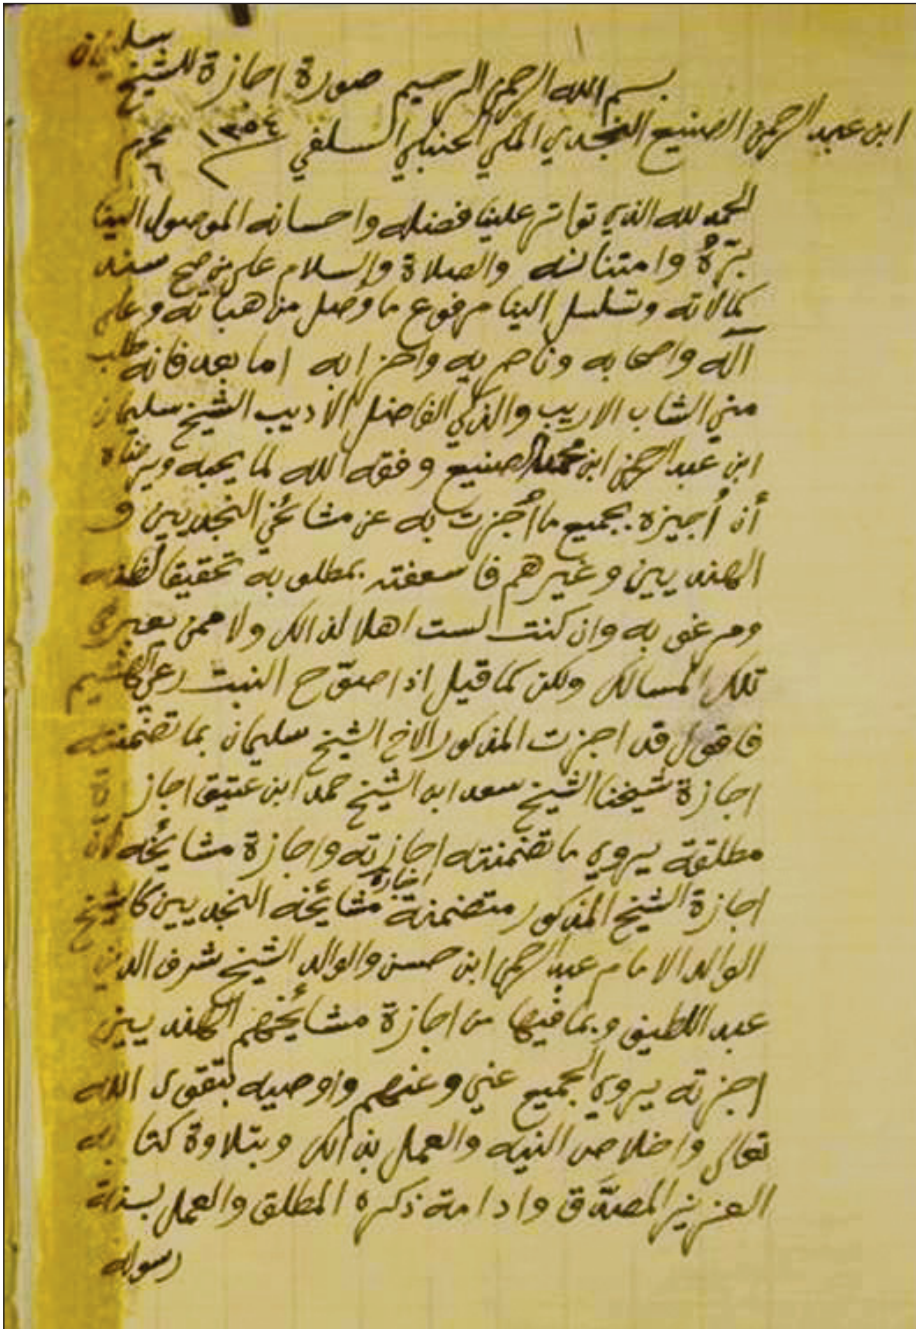 بسم الله الرحمن الرحيم صورة اجازة للشيخ سليمان
ابن عبد الرحمن الصنيع النجدي المكي الحنبلي السلفي ١٣٥٤ محرم ٦
الحمد لله الذي تواتر علينا فضله واحسانه الموصول الينا
برّهُ وامتنانه والصلاة والسلام على من صح سند
كمالاته وتسلسل الينا مرفوع ما وصل من هباته وعلى
آله واصحابه وناصريه واحزابه اما بعد فانه طلب
مني الشاب الاريب والذكي الفاضل الأديب الشيخ سليمان
ابن عبد الرحمن ابن محمد الصنيع وفقه الله لما يحبه ويرضاه
أن أُجيزه بجميع ما أُجزت به عن مشائخي النجديين و
الهنديين وغيرهم فاسعفته بمطلوبه تحقيقا لظنه
ومرغوبه وان كنت لست اهلا لذالك ولا ممن يعبر
تلك المسالك ولكن كما قيل اذا صوّح النبت رعي الهشيم
فاقول قد اجزت المذكور الاخ الشيخ سليمان بما تضمنته
اجازة شيخنا الشيخ سعد ابن الشيخ حمد ابن عتيق اجاز
مطلقة يروي ما تضمنته اجازته واجازة مشائخه لأن
اجازة الشيخ المذكور متضمنة اجازة مشائخه النجديين كالشيخ
الوالد الامام عبد الرحمن ابن حسن والوالد الشيخ شرف الدين
عبد اللطيف وبما فيها من اجازة مشائخهم الهنديين
اجزته يروي الجميع عني وعنهم واوصيه بتقوى الله
تعالى واخلاص النيه والعمل بذالك وبتلاوة كتابه
العزيز المصدَّق وادامة ذكره المطلق والعمل بسنة
رسوله